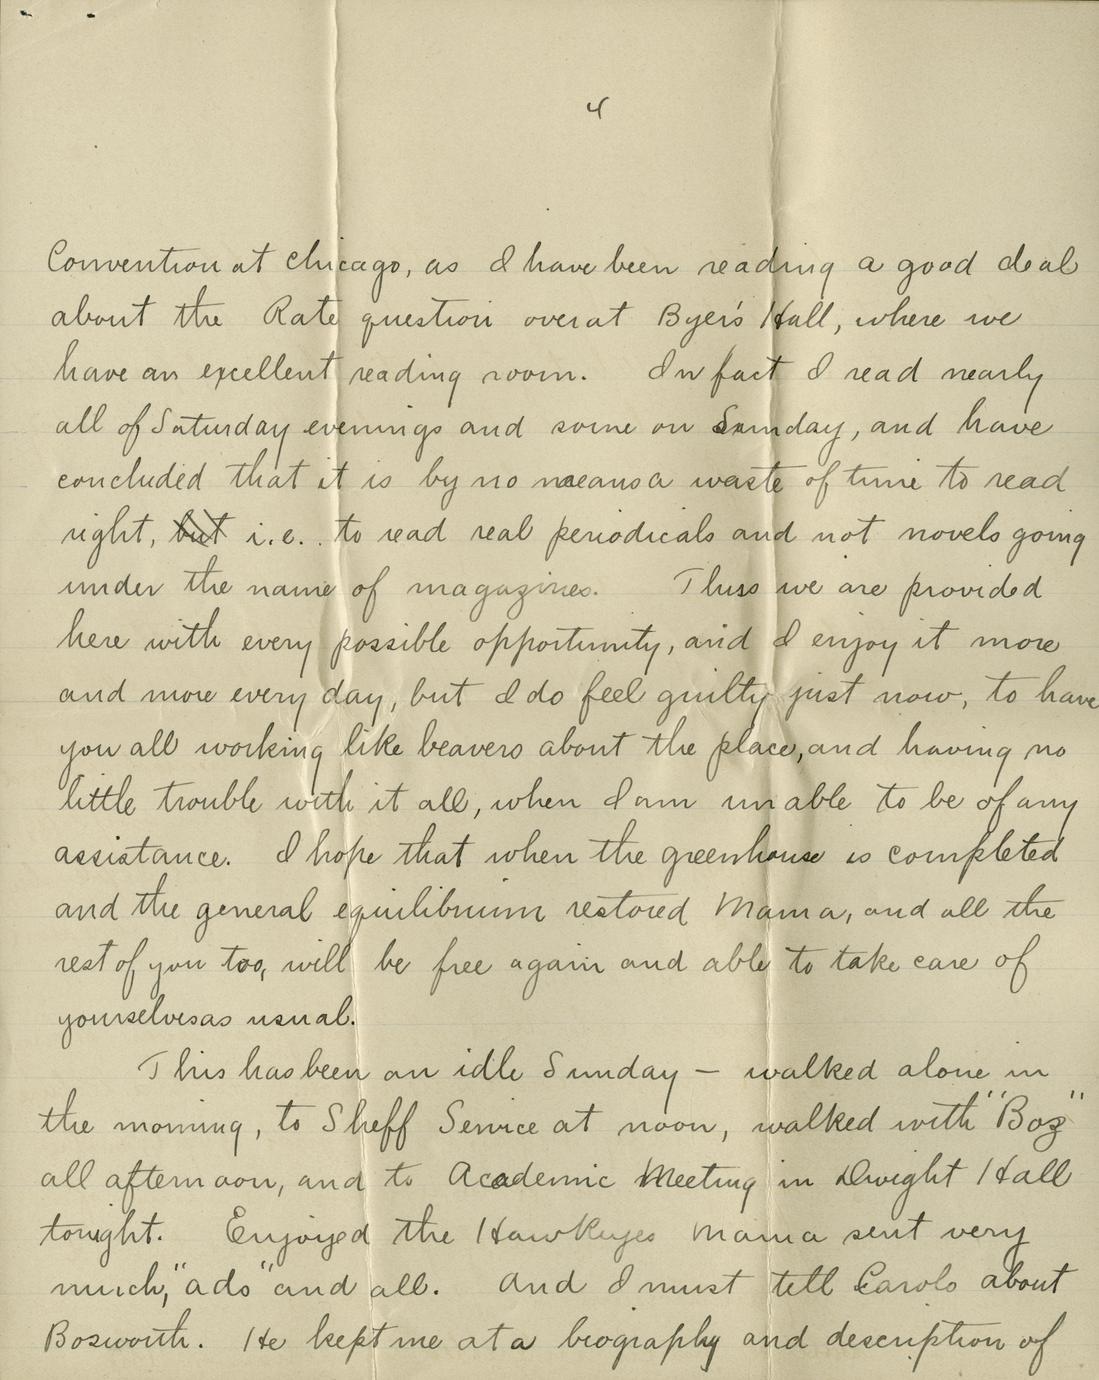 4
Convention at Chicago, as I have been reading a good deal
about the Rate question over at Byer's Hall, where we
have an excellent reading room. In fact I read nearly
all of Saturday evenings and some on Sunday, and have
concluded that it is by no means a waste of time to read
right, but i.e.. to read real periodicals and not novels going
under the name of magazines. Thus we are provided
here with every possible opportunity, and I enjoy it more
and more every day, but I do feel guilty just now, to have
you all working like beavers about the place, and having no
little trouble with it all, when I am unable to be of any
assistance. I hope that when the greenhouse is completed
and the general equilibrium restored Mama, and all the
rest of you too, will be free again and able to take care of
yourselves as usual.
This has been an idle Sunday – walked alone in
the morning, to Sheff Service at noon, walked with "Boz"
all afternoon, and to Academic Meeting in Dwight Hall
tonight. Enjoyed the Hawkeyes Mama sent very
much, "ads" and all. And I must tell Carols about
Bosworth. He kept me at a biography and description of